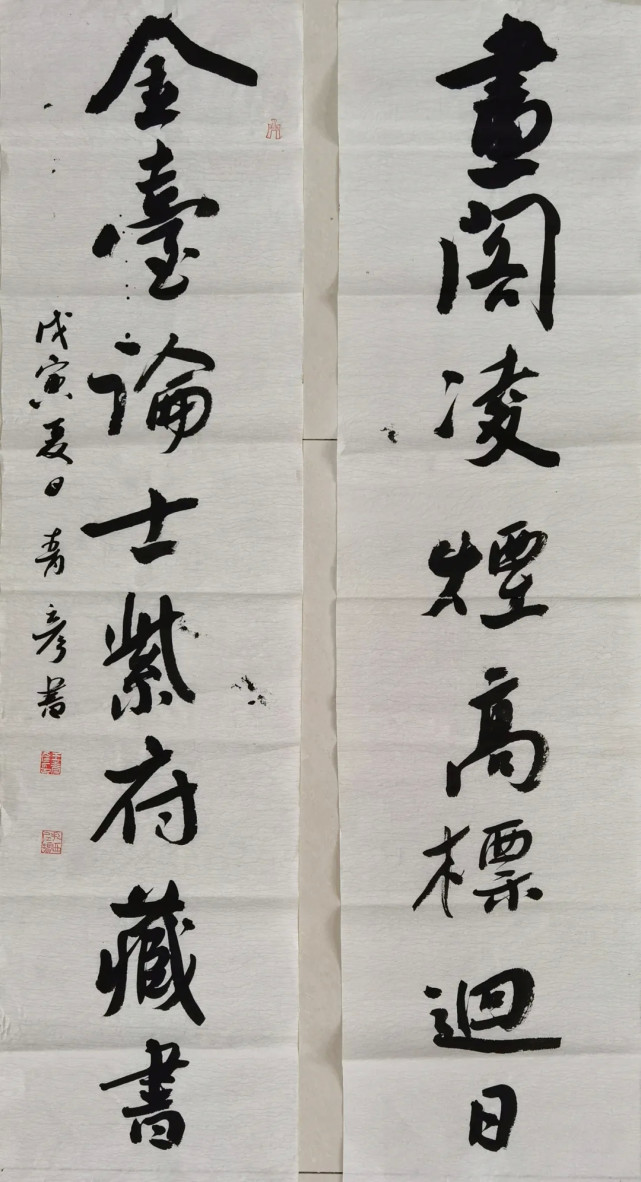 畫閣凌煙高標迴日
金臺論士紫府藏書
戊寅夏日 青彥書